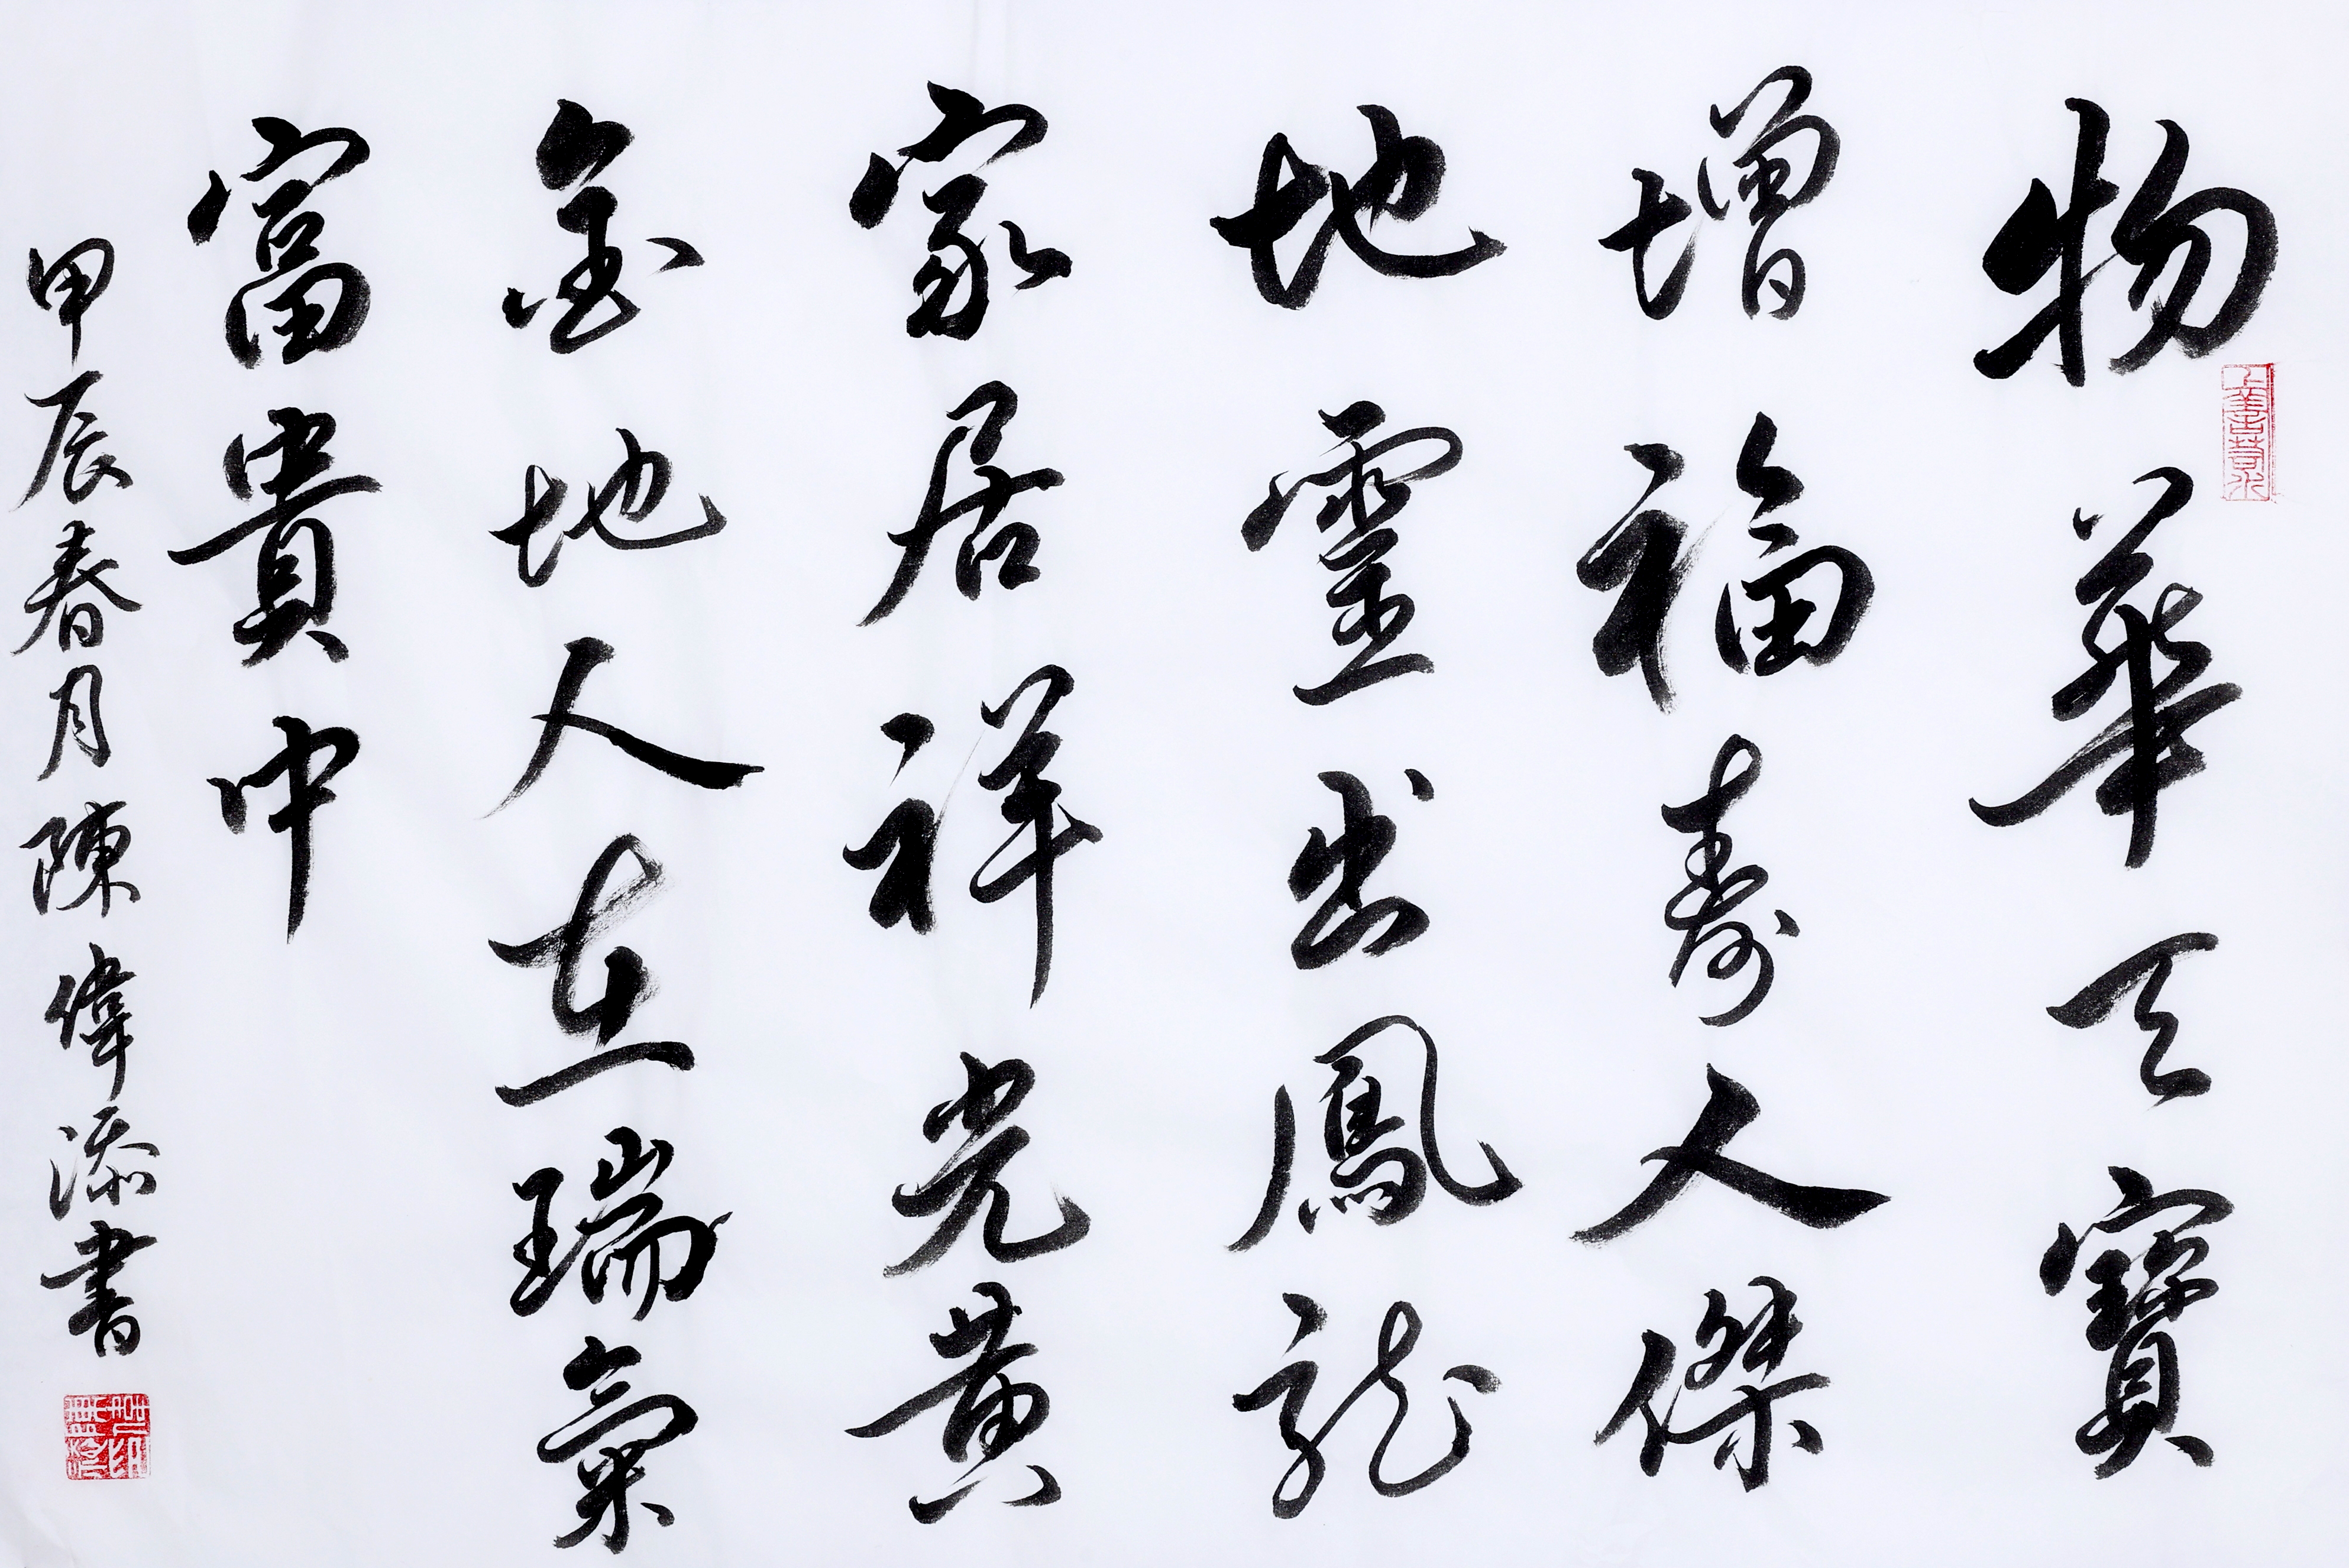 物華天寶
增福壽人傑
地靈出鳳龍
家居祥光黃
金地人在瑞氣
富貴中
甲辰春月陳偉添書
上善若水